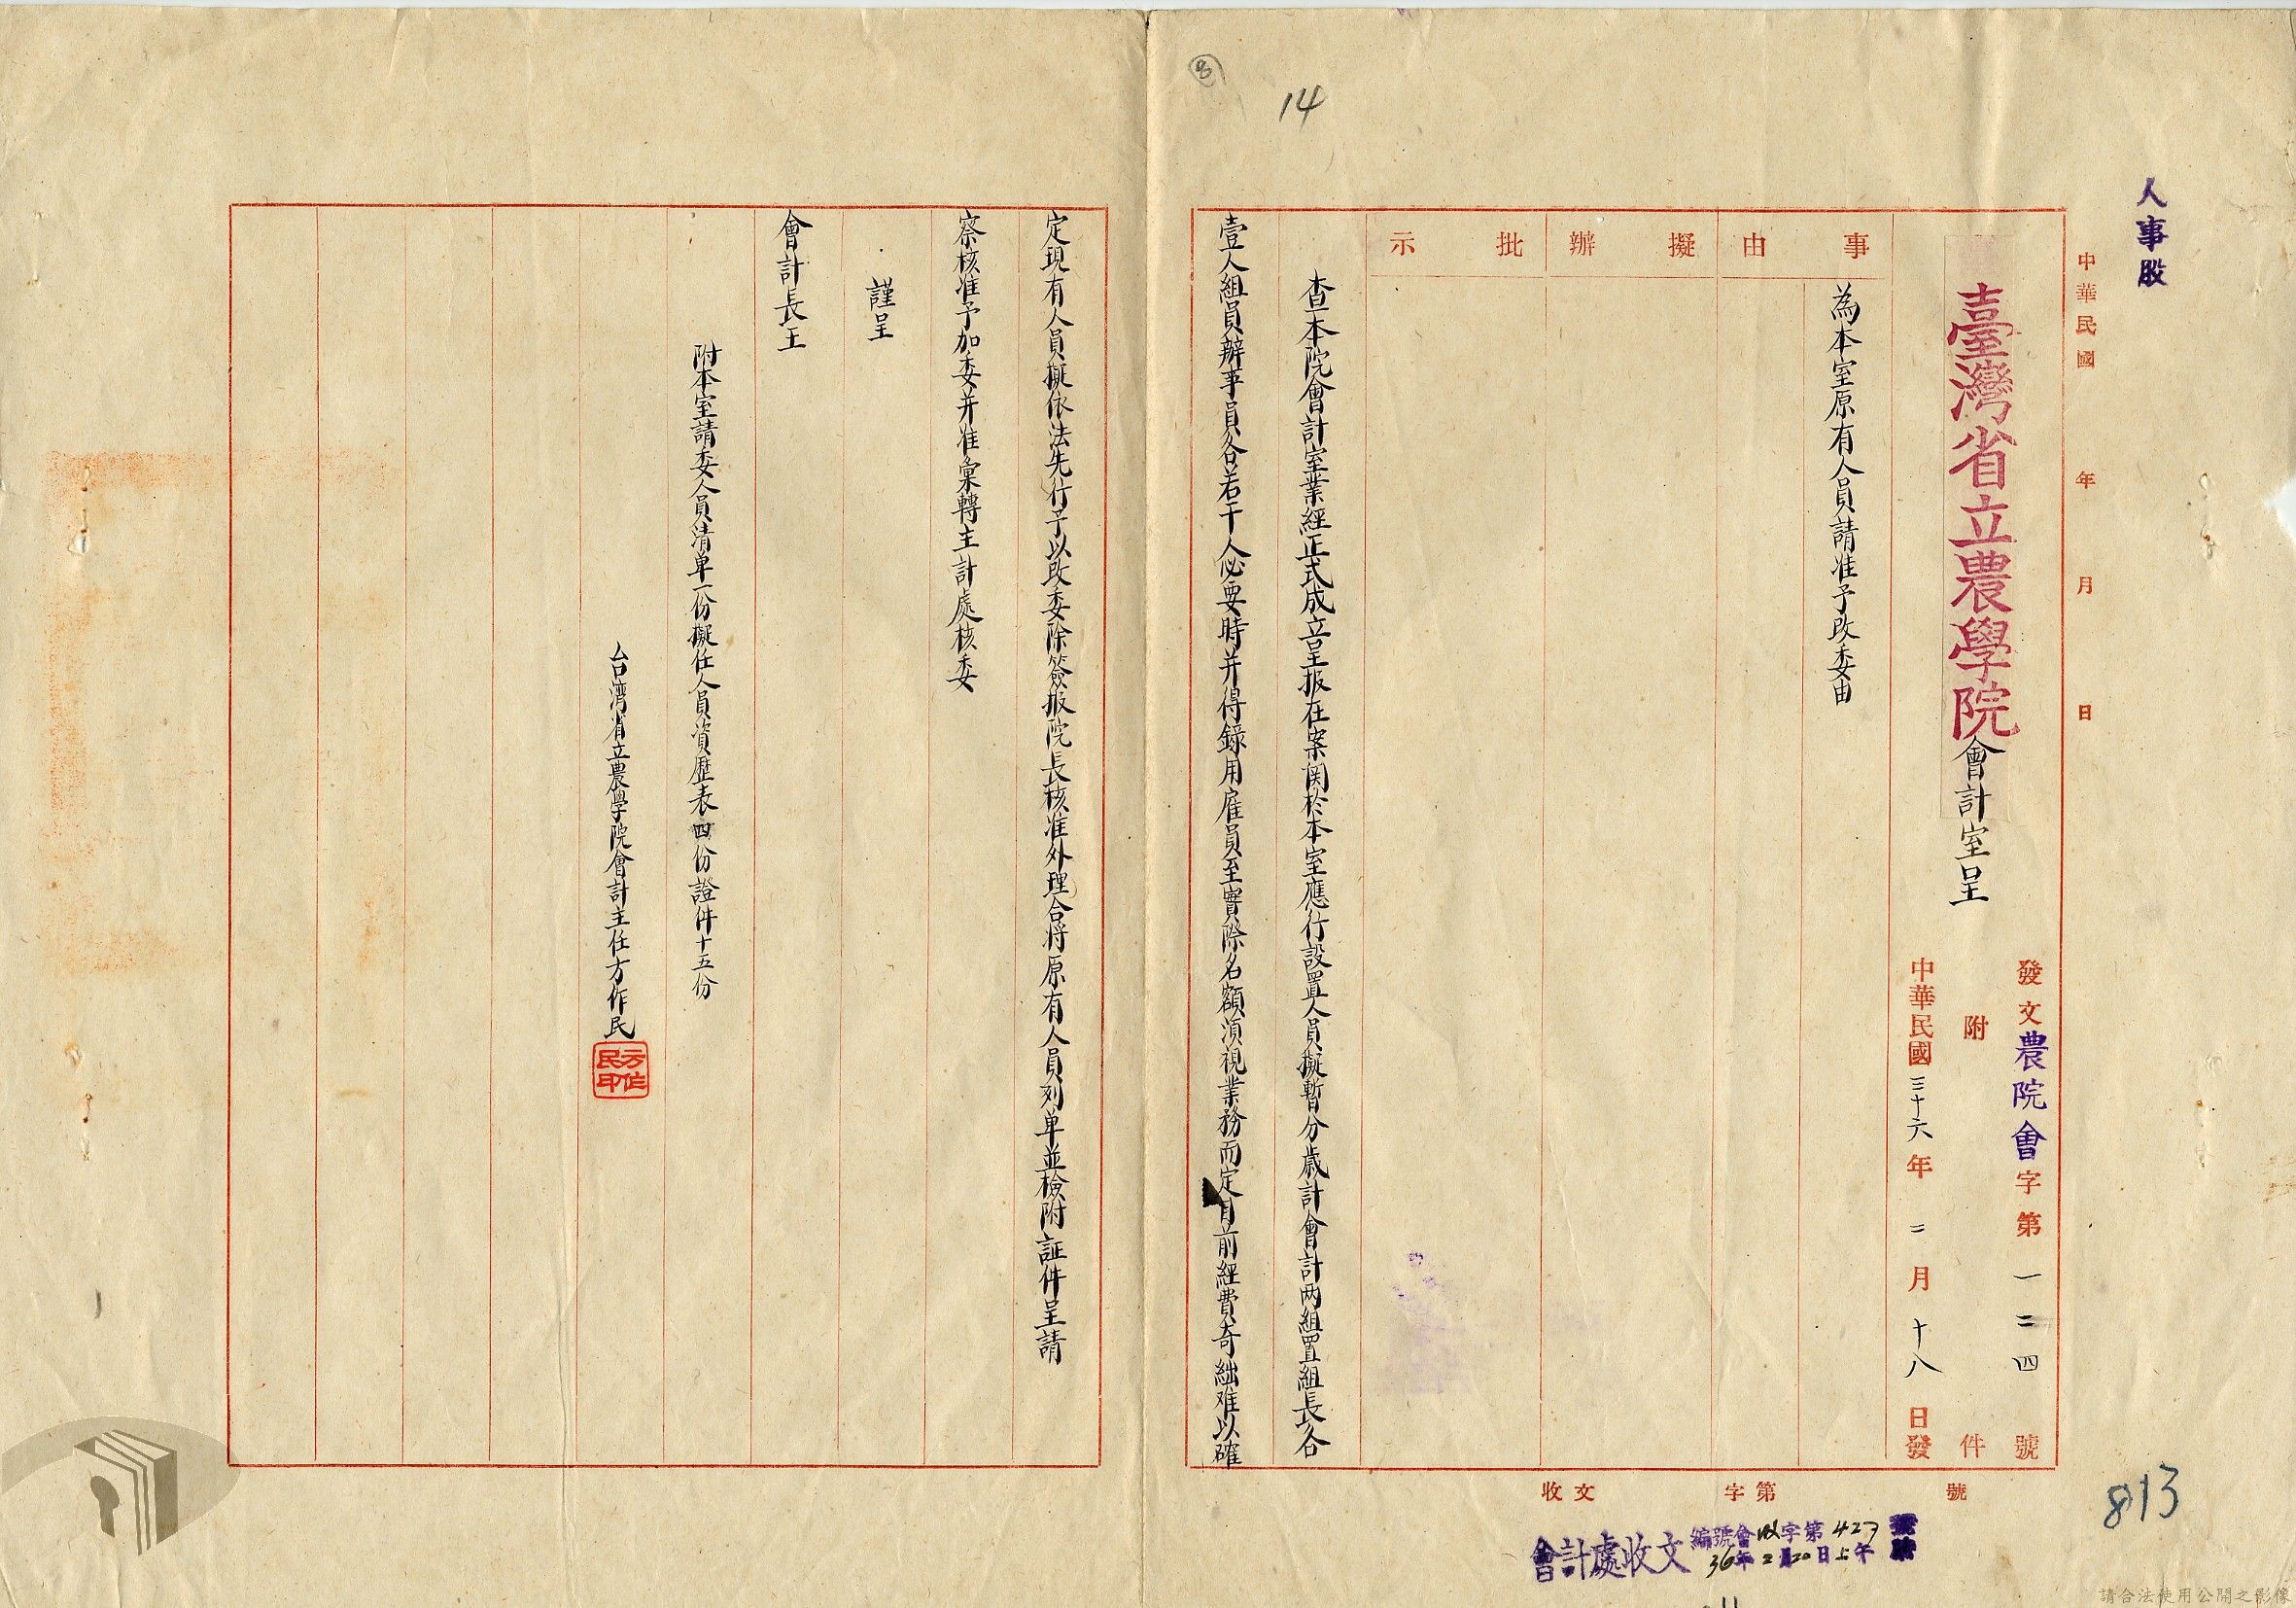 人事股
中華民國 年 月 日
臺灣省立農學院會計室呈
發文農院會字第一二四號
附 件
中華民國三十六年二月十八日發
事由
為本室原有人員請准予改委由
擬辦
批示
查本院會計室業經正式成立呈报在案関於本室應行設置人員擬暫分歲計會計两組置組長各
壹人組員辦事員各若干人必要時并得錄用雇員至實際名額須視業務而定目前經費奇絀难以確
定現有人員擬依法先行予以改委除簽报院長核准外理合将原有人員列单並檢附証件呈請
察核准予加委并准彙轉主計處核委
謹呈
會計長王
附本室請委人員清单一份擬任人員資歷表四份證件十五份
台湾省立農學院會計主任方作民
方作民印
收文 字第 號
會計處收文
編號會 字第427號
36年2月20日上午
8
14
813
請合法使用公開之影像